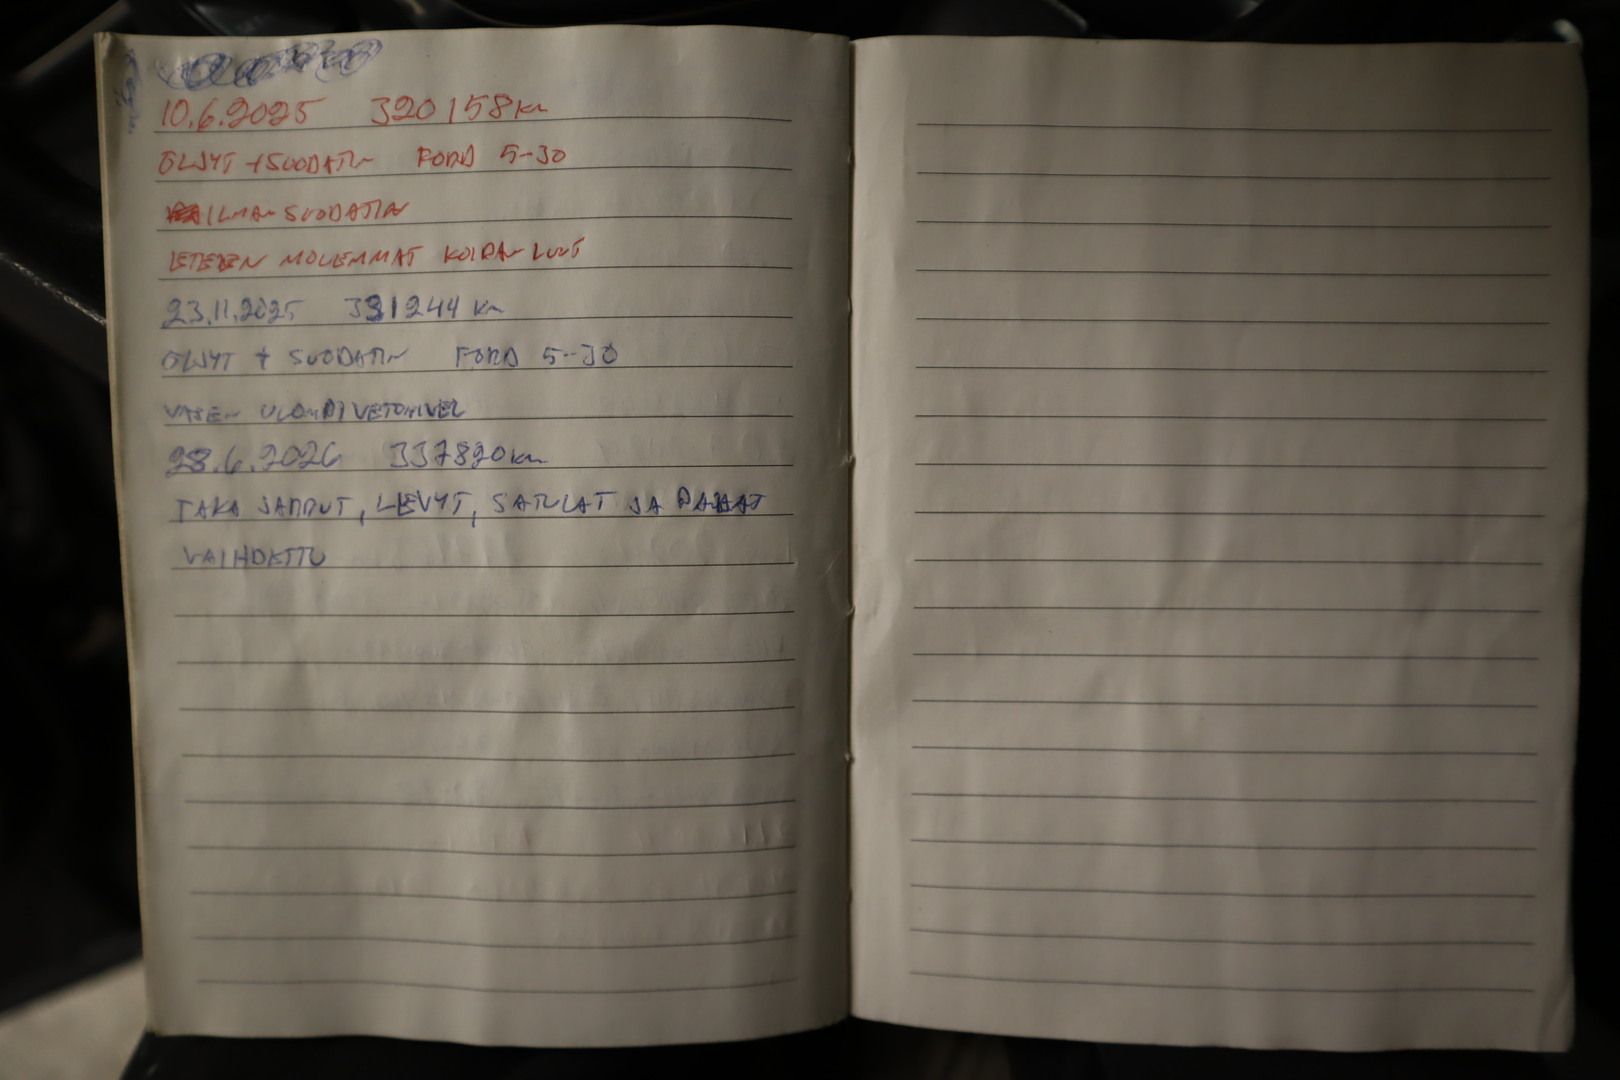 10.6.2025 320158 km
ÖLJYT + SUODATIN FORD 5-30
ILMAN SUODATIN
ETEEN MOLEMMAT KOIRAN LUUT
23.11.2025 321244 km
ÖLJYT + SUODATIN FORD 5-30
VASEN ULOMPI VETONIVEL
28.6.2026 337820 km
TAKA JARRUT, LEVYT, SATULAT JA PALAT
VAIHDETTU